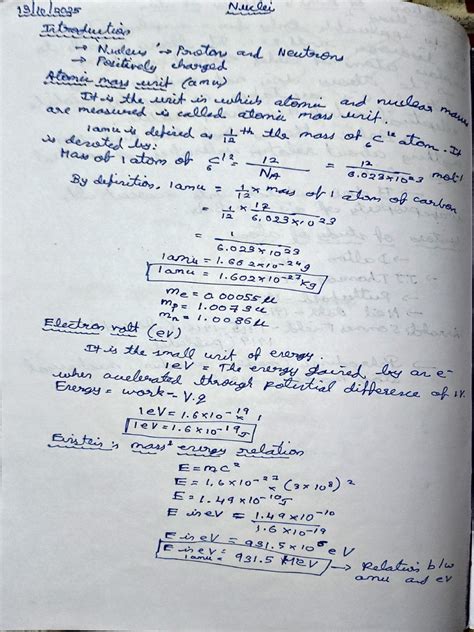 19/10/2025 Nuclei
Introduction
→ Nucleus → Proton and Neutrons
→ Positively charged
Atomic mass unit (amu)
It is the unit in which atomic and nuclear masses
are measured is called atomic mass unit.
1amu is defined as 1/12 th the mass of ₆C¹² atom. It
is denoted by:
Mass of 1 atom of ₆C¹² = 12/NA = 12/6.023×10²³ mol⁻¹
By definition, 1amu = 1/12 × mass of 1 atom of carbon
= 1/12 × 12/6.023×10²³
= 1/6.023×10²³
1amu = 1.662×10⁻²⁴g
1amu = 1.602×10⁻²⁷Kg
me = 0.00055μ
mp = 1.0073μ
mn = 1.0086μ
Electron volt (eV)
It is the small unit of energy.
1eV = The energy gained by an e-
when accelerated through potential difference of 1V.
Energy = work = V.q
1eV = 1.6×10⁻¹⁹ × 1
1eV = 1.6×10⁻¹⁹J
Einstein's mass energy relation
E = mc²
E = 1.6×10⁻²⁷ × (3×10⁸)²
E = 1.49×10⁻¹⁰J
E in eV = 1.49×10⁻¹⁰/1.6×10⁻¹⁹
E in eV = 931.5×10⁶eV
E in eV =
1amu = 931.5 MeV → Relation b/w
amu and eV